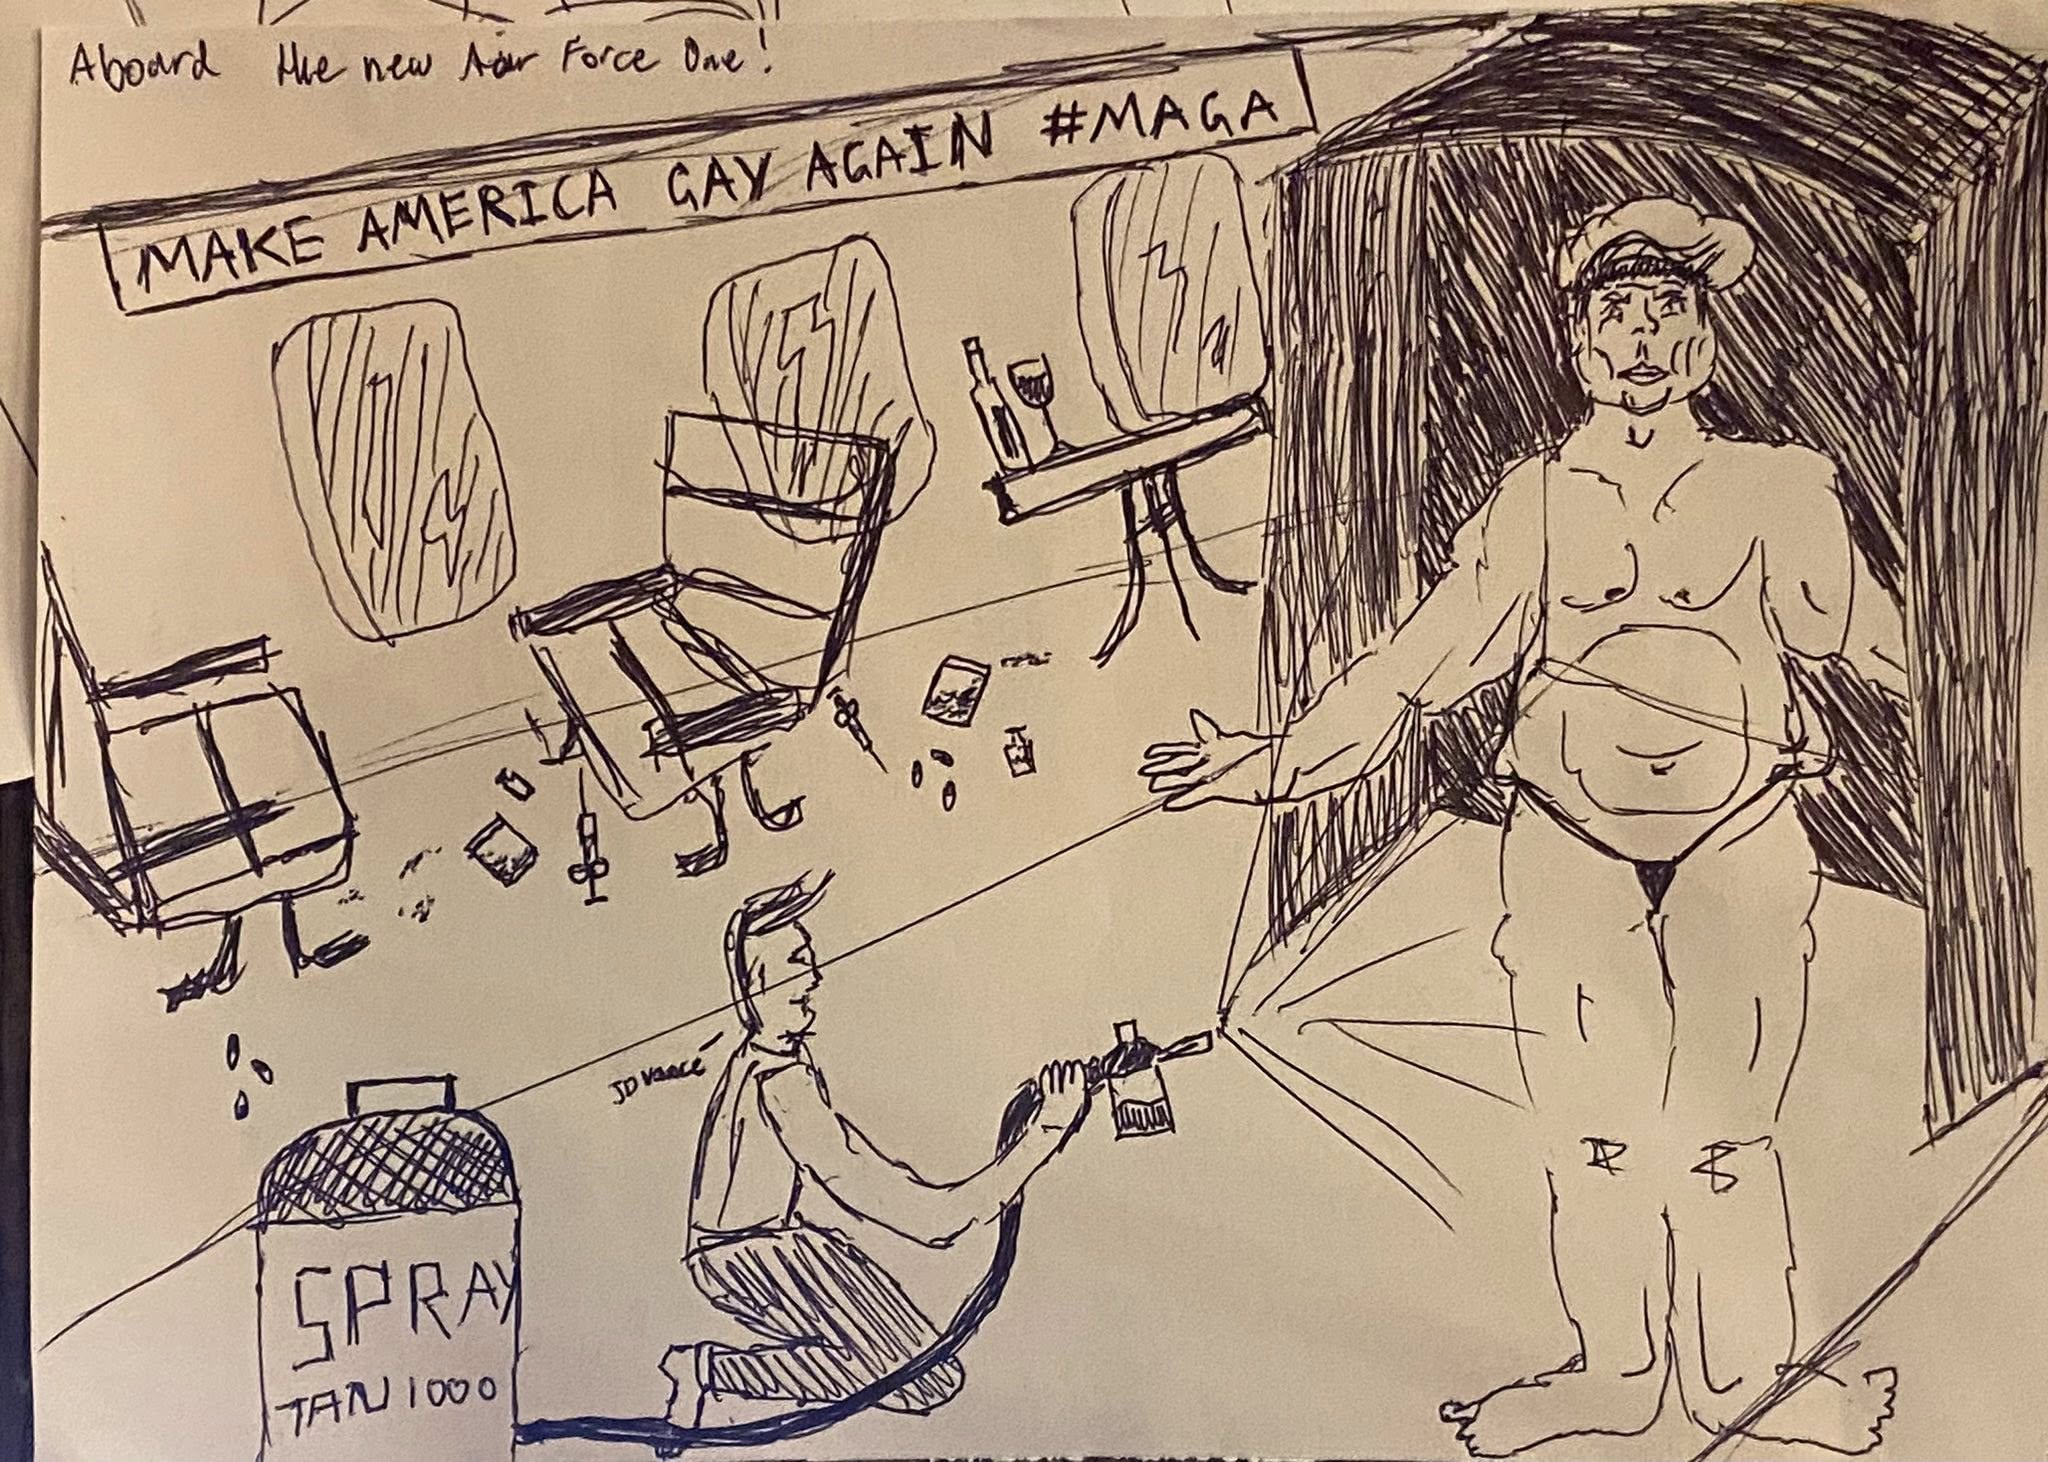 Aboard the new Air Force One!
MAKE AMERICA GAY AGAIN #MAGA
JD Vance
SPRAY
TAN 1000